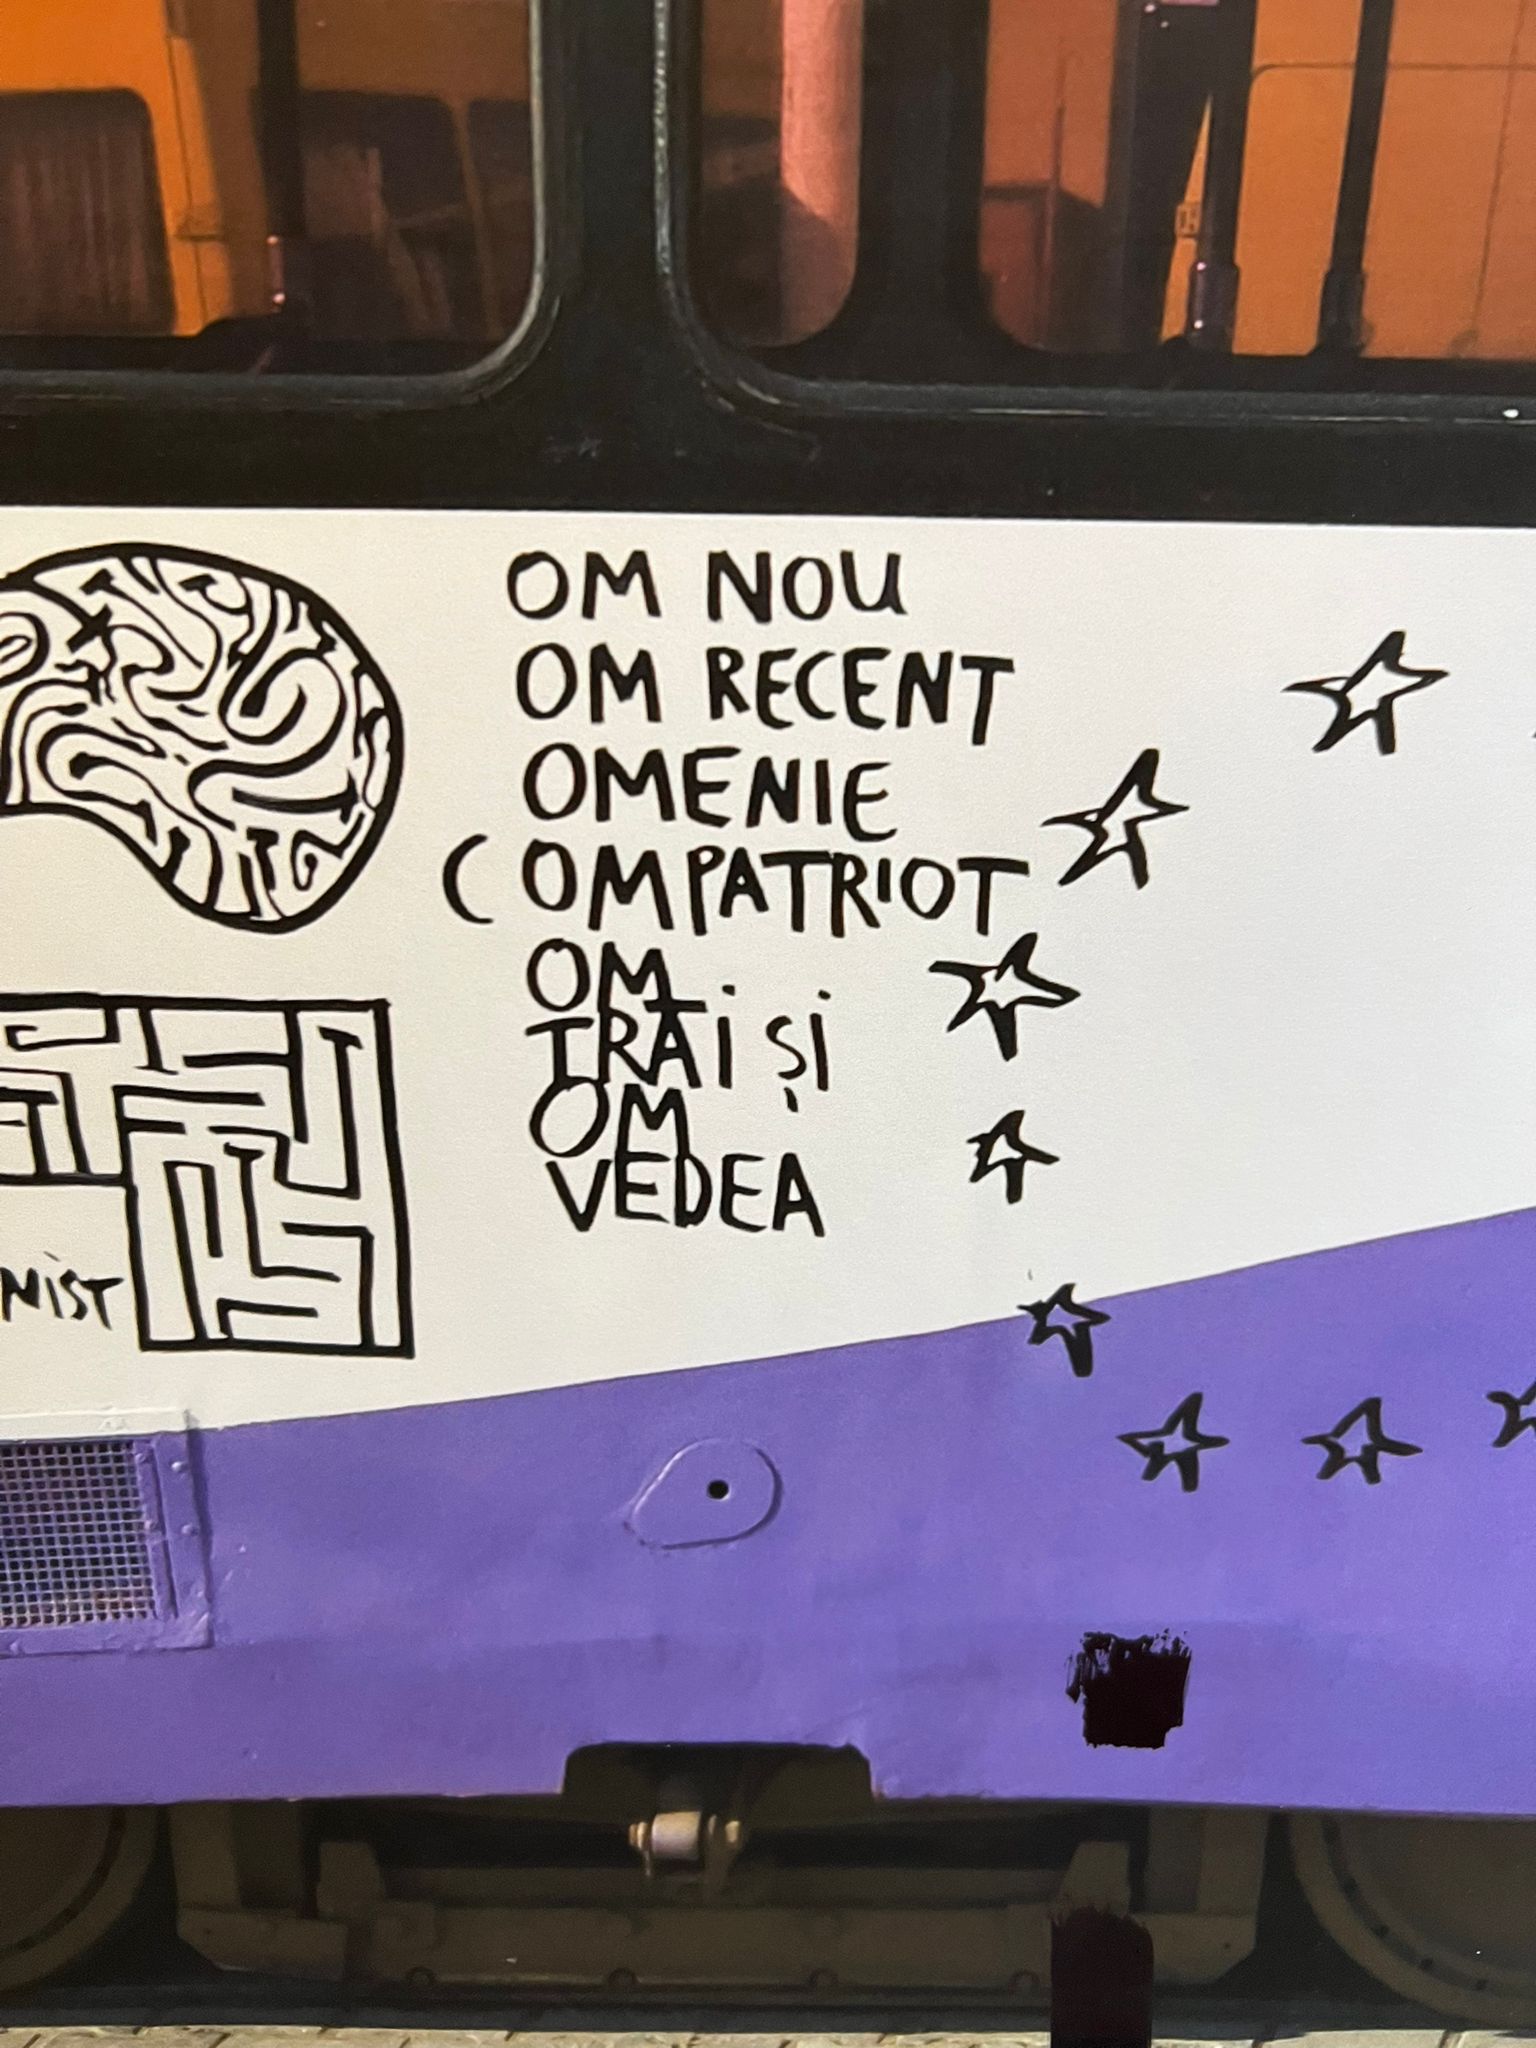 OM NOU
OM RECENT
OMENIE
COMPATRIOT
OM
TRĂi Și
OM
VEDEA
NiST